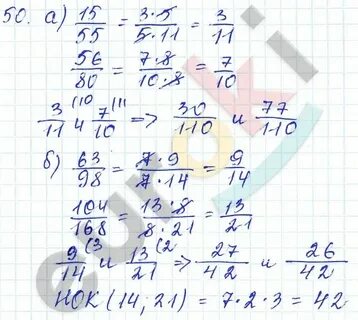 50. а) 15/55 = 3·5/5·11 = 3/11
56/80 = 7·8/10·8 = 7/10
3/11 (10 и 7/10 (11 => 30/110 и 77/110
б) 63/98 = 7·9/7·14 = 9/14
104/168 = 13·8/8·21 = 13/21
9/14 (3 и 13/21 (2 => 27/42 и 26/42
НОК (14; 21) = 7·2·3 = 42
euroki